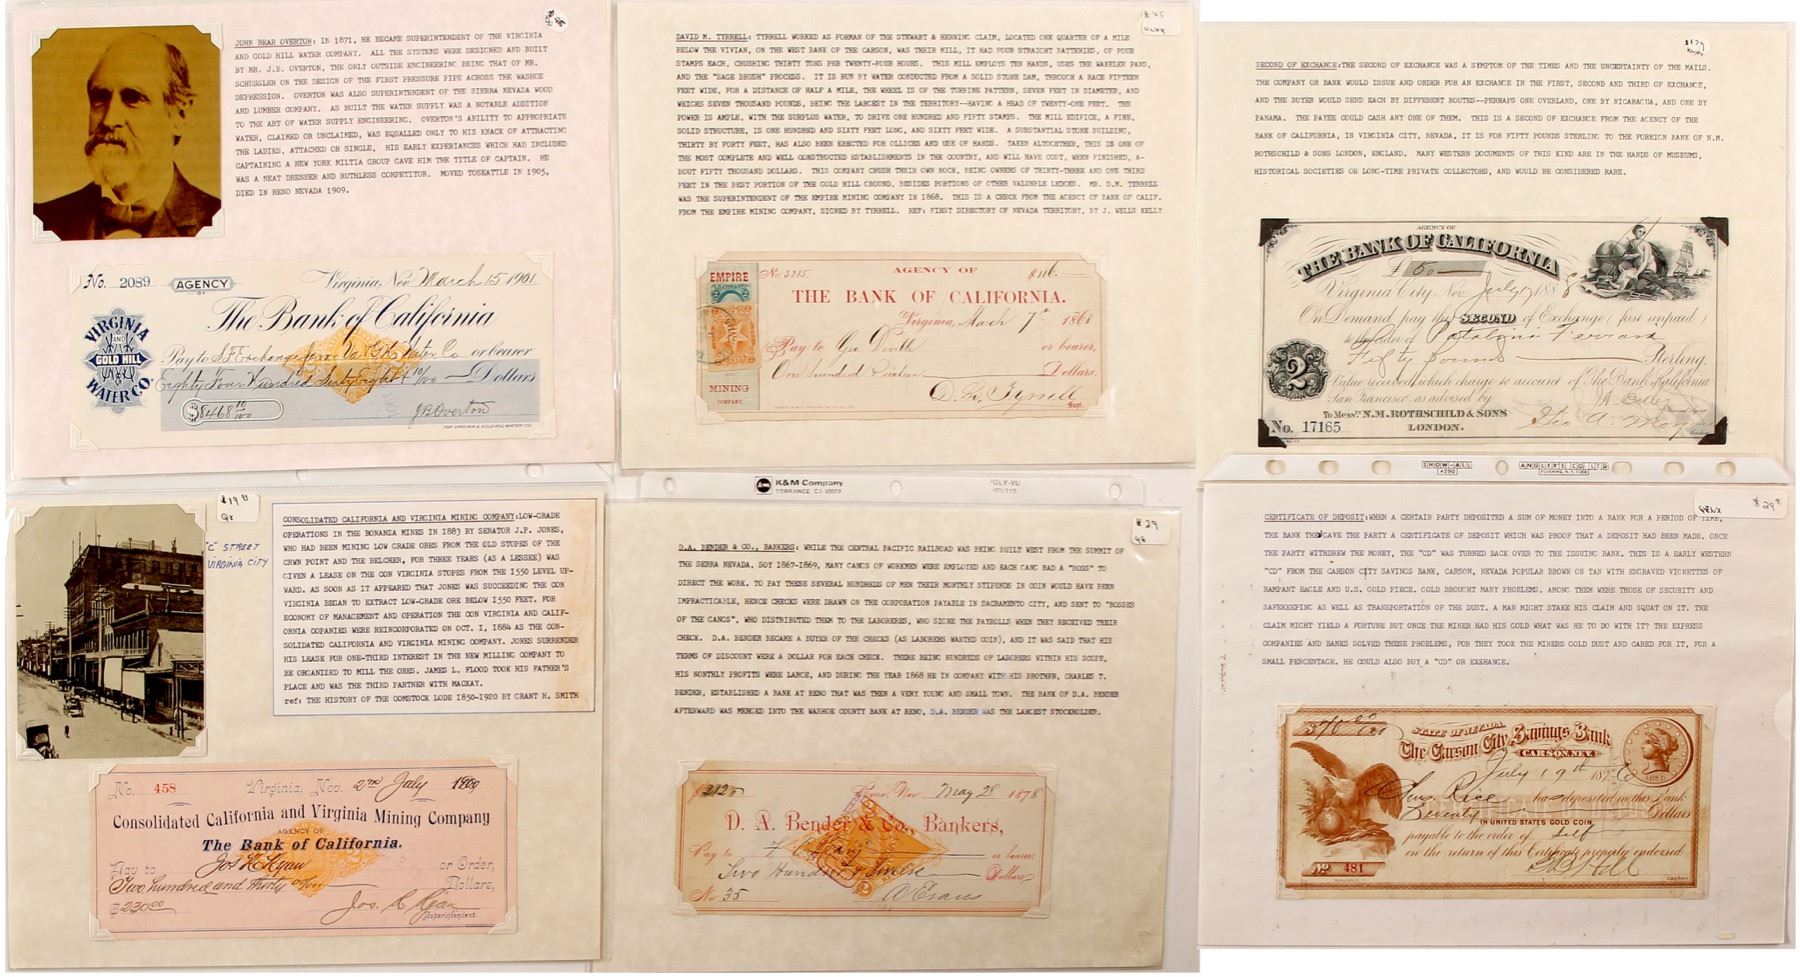 JOHN BEAR OVERTON: IN 1871, HE BECAME SUPERINTENDENT OF THE VIRGINIA
AND GOLD HILL WATER COMPANY. ALL THE SYSTEMS WERE DESIGNED AND BUILT
BY MR. J.B. OVERTON, THE ONLY OUTSIDE ENGINEERING BEING THAT OF MR.
SCHUSSLER ON THE DESIGN OF THE FIRST PRESSURE PIPE ACROSS THE WASHOE
DEPRESSION. OVERTON WAS ALSO SUPERINTENDENT OF THE SIERRA NEVADA WOOD
AND LUMBER COMPANY. AS BUILT THE WATER SUPPLY WAS A NOTABLE ADDITION
TO THE ART OF WATER SUPPLY ENGINEERING. OVERTON'S ABILITY TO APPROPRIATE
WATER, CLAIMED OR UNCLAIMED, WAS EQUALLED ONLY TO HIS KNACK OF ATTRACTING
THE LADIES, ATTACHED OR SINGLE, HIS EARLY EXPERIANCES WHICH HAD INCLUDED
CAPTAINING A NEW YORK MILTIA GROUP GAVE HIM THE TITLE OF CAPTAIN. HE
WAS A NEAT DRESSER AND RUTHLESS COMPETITOR. MOVED TOSEATTLE IN 1905,
DIED IN RENO NEVADA 1909.
No. 2089 AGENCY OF Virginia, Nev. March 15 1901
The Bank of California
VIRGINIA AND GOLD HILL WATER CO.
Pay to S.F. Exchange favor Va & G.H. Water Co or bearer
Eighty Four Hundred Sixty Eight & 10/100 Dollars
$8468 10/100
JB Overton
FOR VIRGINIA & GOLD HILL WATER CO.
$45
DAVID M. TYRRELL: TYRRELL WORKED AS FORMAN OF THE STEWART & HENNING CLAIM, LOCATED ONE QUARTER OF A MILE
BELOW THE VIVIAN, ON THE WEST BANK OF THE CARSON, WAS THEIR MILL, IT HAD FOUR STRAIGHT BATTERIES, OF FOUR
STAMPS EACH, CRUSHING THIRTY TONS PER TWENTY-FOUR HOURS. THIS MILL EMPLOYS TEN HANDS, USES THE WAKELEE PANS,
AND THE "SAGE BRUSH" PROCESS. IT IS RUN BY WATER CONDUCTED FROM A SOLID STONE DAM, THROUCH A RACE FIFTEEN
FEET WIDE, FOR A DISTANCE OF HALF A MILE, THE WHEEL IS OF THE TURBINE PATTERN, SEVEN FEET IN DIAMETER, AND
WEIGHS SEVEN THOUSAND POUNDS, BEING THE LARGEST IN THE TERRITORY--HAVING A HEAD OF TWENTY-ONE FEET. THE
POWER IS AMPLE, WITH THE SURPLUS WATER, TO DRIVE ONE HUNDRED AND FIFTY STAMPS. THE MILL EDIFICE, A FINE,
SOLID STRUCTURE, IS ONE HUNDRED AND SIXTY FEET LONG, AND SIXTY FEET WIDE. A SUBSTANTIAL STONE BUILDING,
THIRTY BY FORTY FEET, HAS ALSO BEEN ERECTED FOR OLLICES AND USE OF HANDS. TAKEN ALTOCETHER, THIS IS ONE OF
THE MOST COMPLETE AND WELL CONSTRUCTED ESTABLISHMENTS IN THE COUNTRY, AND WILL HAVE COST, WHEN FINISHED, A-
BOUT FIFTY THOUSAND DOLLARS. THIS COMPANY CRUSH THEIR OWN ROCK, BEING OWNERS OF THIRTY-THREE AND ONE THIRD
FEET IN THE BEST PORTION OF THE GOLD HILL GROUND, BESIDES PORTIONS OF OTHER VALUNBLE LEDGES. MR. D.M. TERRELL
WAS THE SUPERINTENDENT OF THE EMPIRE MINING COMPANY IN 1868. THIS IS A CHECK FROM THE AGENCY OF BANK OF CALIF.
FROM THE EMPIRE MINING COMPANY, SIGNED BY TYRRELL. REF: FIRST DIRECTORY OF NEVADA TERRITORY, BY J. WELLS KELLY
EMPIRE MINING COMPANY
No. 3285 AGENCY OF $116.
THE BANK OF CALIFORNIA.
Virginia, March 7th 1868
Pay to Geo Deville or bearer,
One hundred Sixteen Dollars.
Supt.
SECOND OF EXCHANGE:THE SECOND OF EXCHANGE WAS A SYMPTOM OF THE TIMES AND THE UNCERTAINTY OF THE MAILS.
THE COMPANY OR BANK WOULD ISSUE AND ORDER FOR AN EXCHANGE IN THE FIRST, SECOND AND THIRD OF EXCHANGE,
AND THE BUYER WOULD SEND EACH BY DIFFERENT ROUTES--PERHAPS ONE OVERLAND, ONE BY NICARAGUA, AND ONE BY
PANAMA. THE PAYEE COULD CASH ANY ONE OF THEM. THIS IS A SECOND OF EXCHANGE FROM THE AGENCY OF THE
BANK OF CALIFORNIA, IN VIRGINIA CITY, NEVADA, IT IS FOR FIFTY POUNDS STERLING TO THE FOREIGN BANK OF N.M.
ROTHSCHILD & SONS LONDON, ENGLAND. MANY WESTERN DOCUMENTS OF THIS KIND ARE IN THE HANDS OF MUSEUMS,
HISTORICAL SOCIETIES OR LONG-TIME PRIVATE COLLECTORS, AND WOULD BE CONSIDERED RARE.
AGENCY OF
THE BANK OF CALIFORNIA
£ 50
Virginia City, Nev. July 17 1888
On Demand pay this SECOND of Exchange (first unpaid)
to the order of
Fifty pounds Sterling.
Value received which charge to account of The Bank of California
San Francisco, as advised by
2
To Messrs. N.M. ROTHSCHILD & SONS
LONDON.
No. 17165
SHOW-ALL
ANGLER'S CO LTD
FLUSHING, N.Y.
$19
"C" STREET
VIRGINIA CITY
CONSOLIDATED CALIFORNIA AND VIRGINIA MINING COMPANY:LOW-GRADE
OPERATIONS IN THE BONANZA MINES IN 1883 BY SENATOR J.P. JONES,
WHO HAD BEEN MINING LOW GRADE ORES FROM THE OLD STOPES OF THE
CRWN POINT AND THE BELCHER, FOR THREE YEARS (AS A LESSEE) WAS
GIVEN A LEASE ON THE CON VIRGINIA STOPES FROM THE I550 LEVEL UP-
WARD. AS SOON AS IT APPEARED THAT JONES WAS SUCCEEDING THE CON
VIRGINIA BEGAN TO EXTRACT LOW-GRADE ORE BELOW I550 FEET. FOR
ECONOMY OF MANAGEMENT AND OPERATION THE CON VIRGINIA AND CALIF-
ORNIA COPANIES WERE REINCORPORATED ON OCT. I, I884 AS THE CON-
SOLIDATED CALIFORNIA AND VIRGINIA MINING COMPANY. JONES SURRENDER
HIS LEASE FOR ONE-THIRD INTEREST IN THE NEW MILLING COMPANY TO
BE ORGANIZED TO MILL THE ORES. JAMES L. FLOOD TOOK HIS FATHER'S
PLACE AND WAS THE THIRD PARTNER WITH MACKAY.
ref: THE HISTORY OF THE COMSTOCK LODE I850-I920 BY GRANT H. SMITH
No. 458 Virginia, Nev. 2nd July 1900
Consolidated California and Virginia Mining Company
AGENCY OF
The Bank of California.
Pay to Jos. R. Ryan or Order,
Two hundred and thirty Dollars,
$230.00 Jos. R. Ryan
Superintendent.
K&M Company
TORRANCE, CA 90503
POLY-VU
$29
D.A. BENDER & CO., BANKERS: WHILE THE CENTRAL PACIFIC RAILROAD WAS BEING BUILT WEST FROM THE SUMMIT OF
THE SERRA NEVADA, SOY I867-I869, MANY CANGS OF WORKMEN WERE EMPLOYED AND EACH GANG HAD A "BOSS" TO
DIRECT THE WORK. TO PAY THESE SEVERAL HUNDREDS OF MEN THEIR MONTHLY STIPENDS IN COIN WOULD HAVE BEEN
IMPRACTICABLE, HENCE CHECKS WERE DRAWN ON THE CORPORATION PAYABLE IN SACRAMENTO CITY, AND SENT TO "BOSSES
OF THE CANGS", WHO DISTRIBUTED THEM TO THE LABORERS, WHO SIGNE THE PAYROLLS WHEN THEY RECEIVED THEIR
CHECK. D.A. BENDER BECAME A BUYER OF THE CHECKS (AS LABORERS WANTED COIN), AND IT WAS SAID THAT HIS
TERMS OF DISCOUNT WERE A DOLLAR FOR EACH CHECK. THERE BEING HUNDREDS OF LABORERS WITHIN HIS SCOPE,
HIS NONTHLY PROFITS WERE LARGE, AND DURING THE YEAR I868 HE IN COMPANY WITH HIS BROTHFR, CHARLES T.
BENDER, ESTABLISHED A BANK AT RENO THAT WAS THEN A VERY YOUNG AND SMALL TOWN. THE BANK OF D.A. BENDER
AFTERWARD WAS MERGED INTO THE WASHOE COUNTY BANK AT RENO, D.A. BENDER WAS THE LARGEST STOCKHOLDER.
Reno, Nev. May 28 1878
D. A. Bender & Co., Bankers,
Pay to or bearer,
Two Hundred & Twelve Dollars
No 35
$29
CERTIFICATE OF DEPOSIT:WHEN A CERTAIN PARTY DEPOSITED A SUM OF MONEY INTO A BANK FOR A PERIOD OF TIME,
THE BANK THEN GAVE THE PARTY A CERTIFICATE OF DEPOSIT WHICH WAS PROOF THAT A DEPOSIT HAD BEEN MADE. ONCE
THE PARTY WITHDREW THE MONEY, THE "CD" WAS TURNED BACK OVER TO THE ISSUING BANK. THIS IS A EARLY WESTERN
"CD" FROM THE CARSON CITY SAVINGS BANK, CARSON, NEVADA POPULAR BROWN ON TAN WITH ENGRAVED VIGNETTES OF
RAMPANT EAGLE AND U.S. GOLD PIECE. GOLD BROUGHT MANY PROBLEMS, AMONG THEM WERE THOSE OF SECURITY AND
SAFEKEEPING AS WELL AS TRANSPORTATION OF THE DUST. A MAN MIGHT STAKE HIS CLAIM AND SQUAT ON IT. THE
CLAIM MIGHT YIELD A FORTUNE BUT ONCE THE MINER HAD HIS GOLD WHAT WAS HE TO DO WITH IT? THE EXPRESS
COMPANIES AND BANKS SOLVED THESE PROBLEMS, FOR THEY TOOK THE MINERS GOLD DUST AND CARED FOR IT, FOR A
SMALL PERCENTAGE. HE COULD ALSO BUY A "CD" OR EXSHANGE.
STATE OF NEVADA
The Carson City Savings Bank
CARSON, NEV.
July 19th 187
has deposited in this Bank
Seventy Dollars
IN UNITED STATES GOLD COIN
payable to the order of Self
on the return of this Certificate properly endorsed
No 481
Cashier